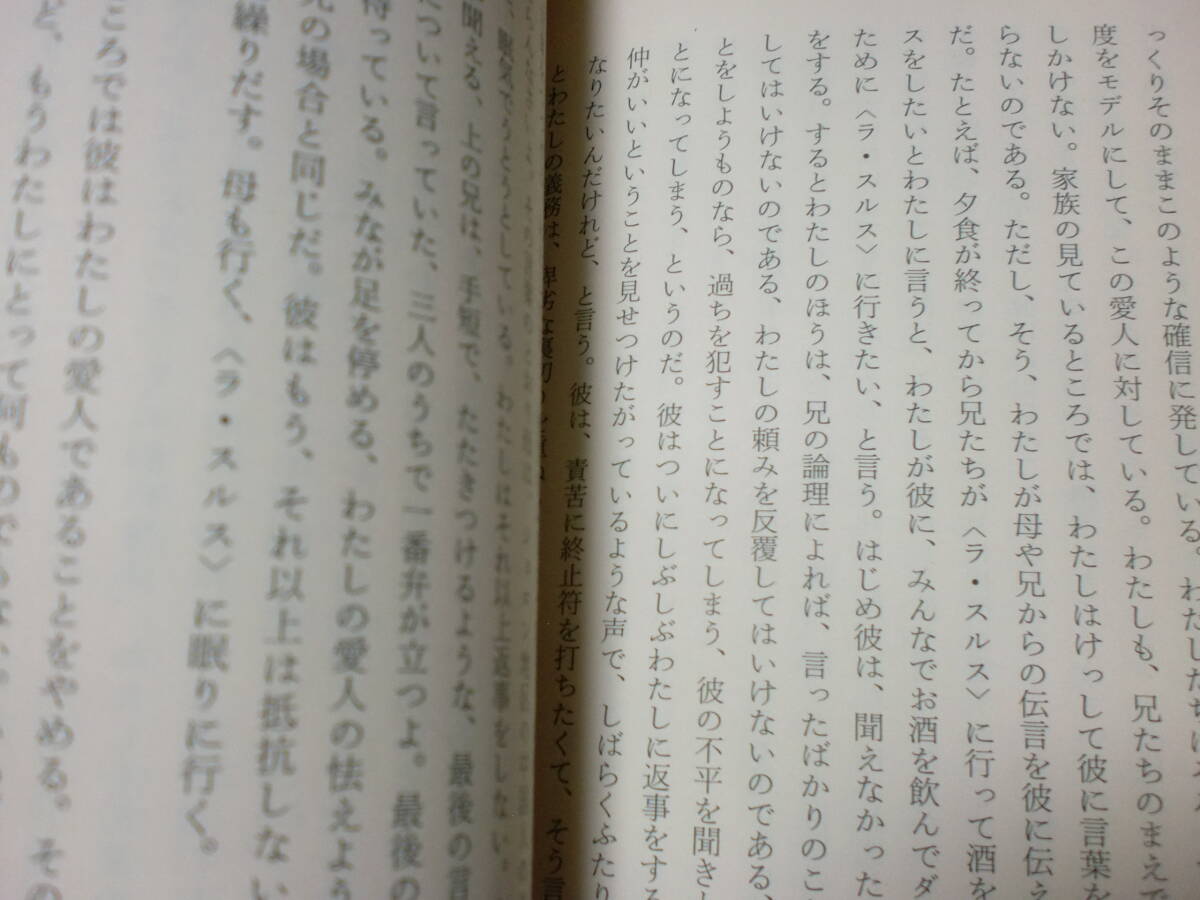 っくりそのままこのような確信に発している。わたしたちは
度をモデルにして、この愛人に対している。わたしも、兄たちのまえで
しかけない。家族の見ているところでは、わたしはけっして彼に言葉を
らないのである。ただし、そう、わたしが母や兄からの伝言を彼に伝え
だ。たとえば、夕食が終ってから兄たちが〈ラ・スルス〉に行って酒を
スをしたいとわたしに言うと、わたしが彼に、みんなでお酒を飲んでダ
ために〈ラ・スルス〉に行きたい、と言う。はじめ彼は、聞えなかった
をする。するとわたしのほうは、兄の論理によれば、言ったばかりのこ
してはいけないのである、わたしの頼みを反覆してはいけないのである、
とをしようものなら、過ちを犯すことになってしまう、彼の不平を聞き
とになってしまう、というのだ。彼はついにしぶしぶわたしに返事をする
仲がいいということを見せつけたがっているような声で、しばらくふたり
なりたいんだけれど、と言う。彼は、責苦に終止符を打ちたくて、そう言
とわたしの義務は、卑劣な裏切り
、眠気でうとうとしている。わたしはそれ以上返事をしない。
聞える、上の兄は、手短で、たたきつけるような、最後の言
について言っていた、三人のうちで一番弁が立つよ。最後の
待っている。みなが足を停める、わたしの愛人の怯えよう
兄の場合と同じだ。彼はもう、それ以上は抵抗しない
繰りだす。母も行く、〈ラ・スルス〉に眠りに行く。
ころでは彼はわたしの愛人であることをやめる。その
ど、もうわたしにとって何ものでもない。